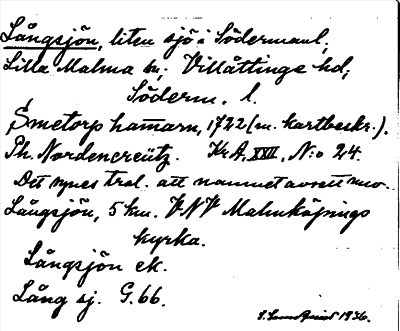 Långsjön, liten sjö i Södermanl.,
Lilla Malma sn, Villåttinge hd,
Söderm. l.
Smetorp hamarn, 1722 (m. kartbeskr.).
Ph. Nordencreütz. Kr. A, XXII, N:o 24.
Det synes trol. att namnet avsett nuv.
Långsjön, 5 km. VNV Malmköpings
kyrka.
Långsjön ek.
Lång sj. G.66.
1936.